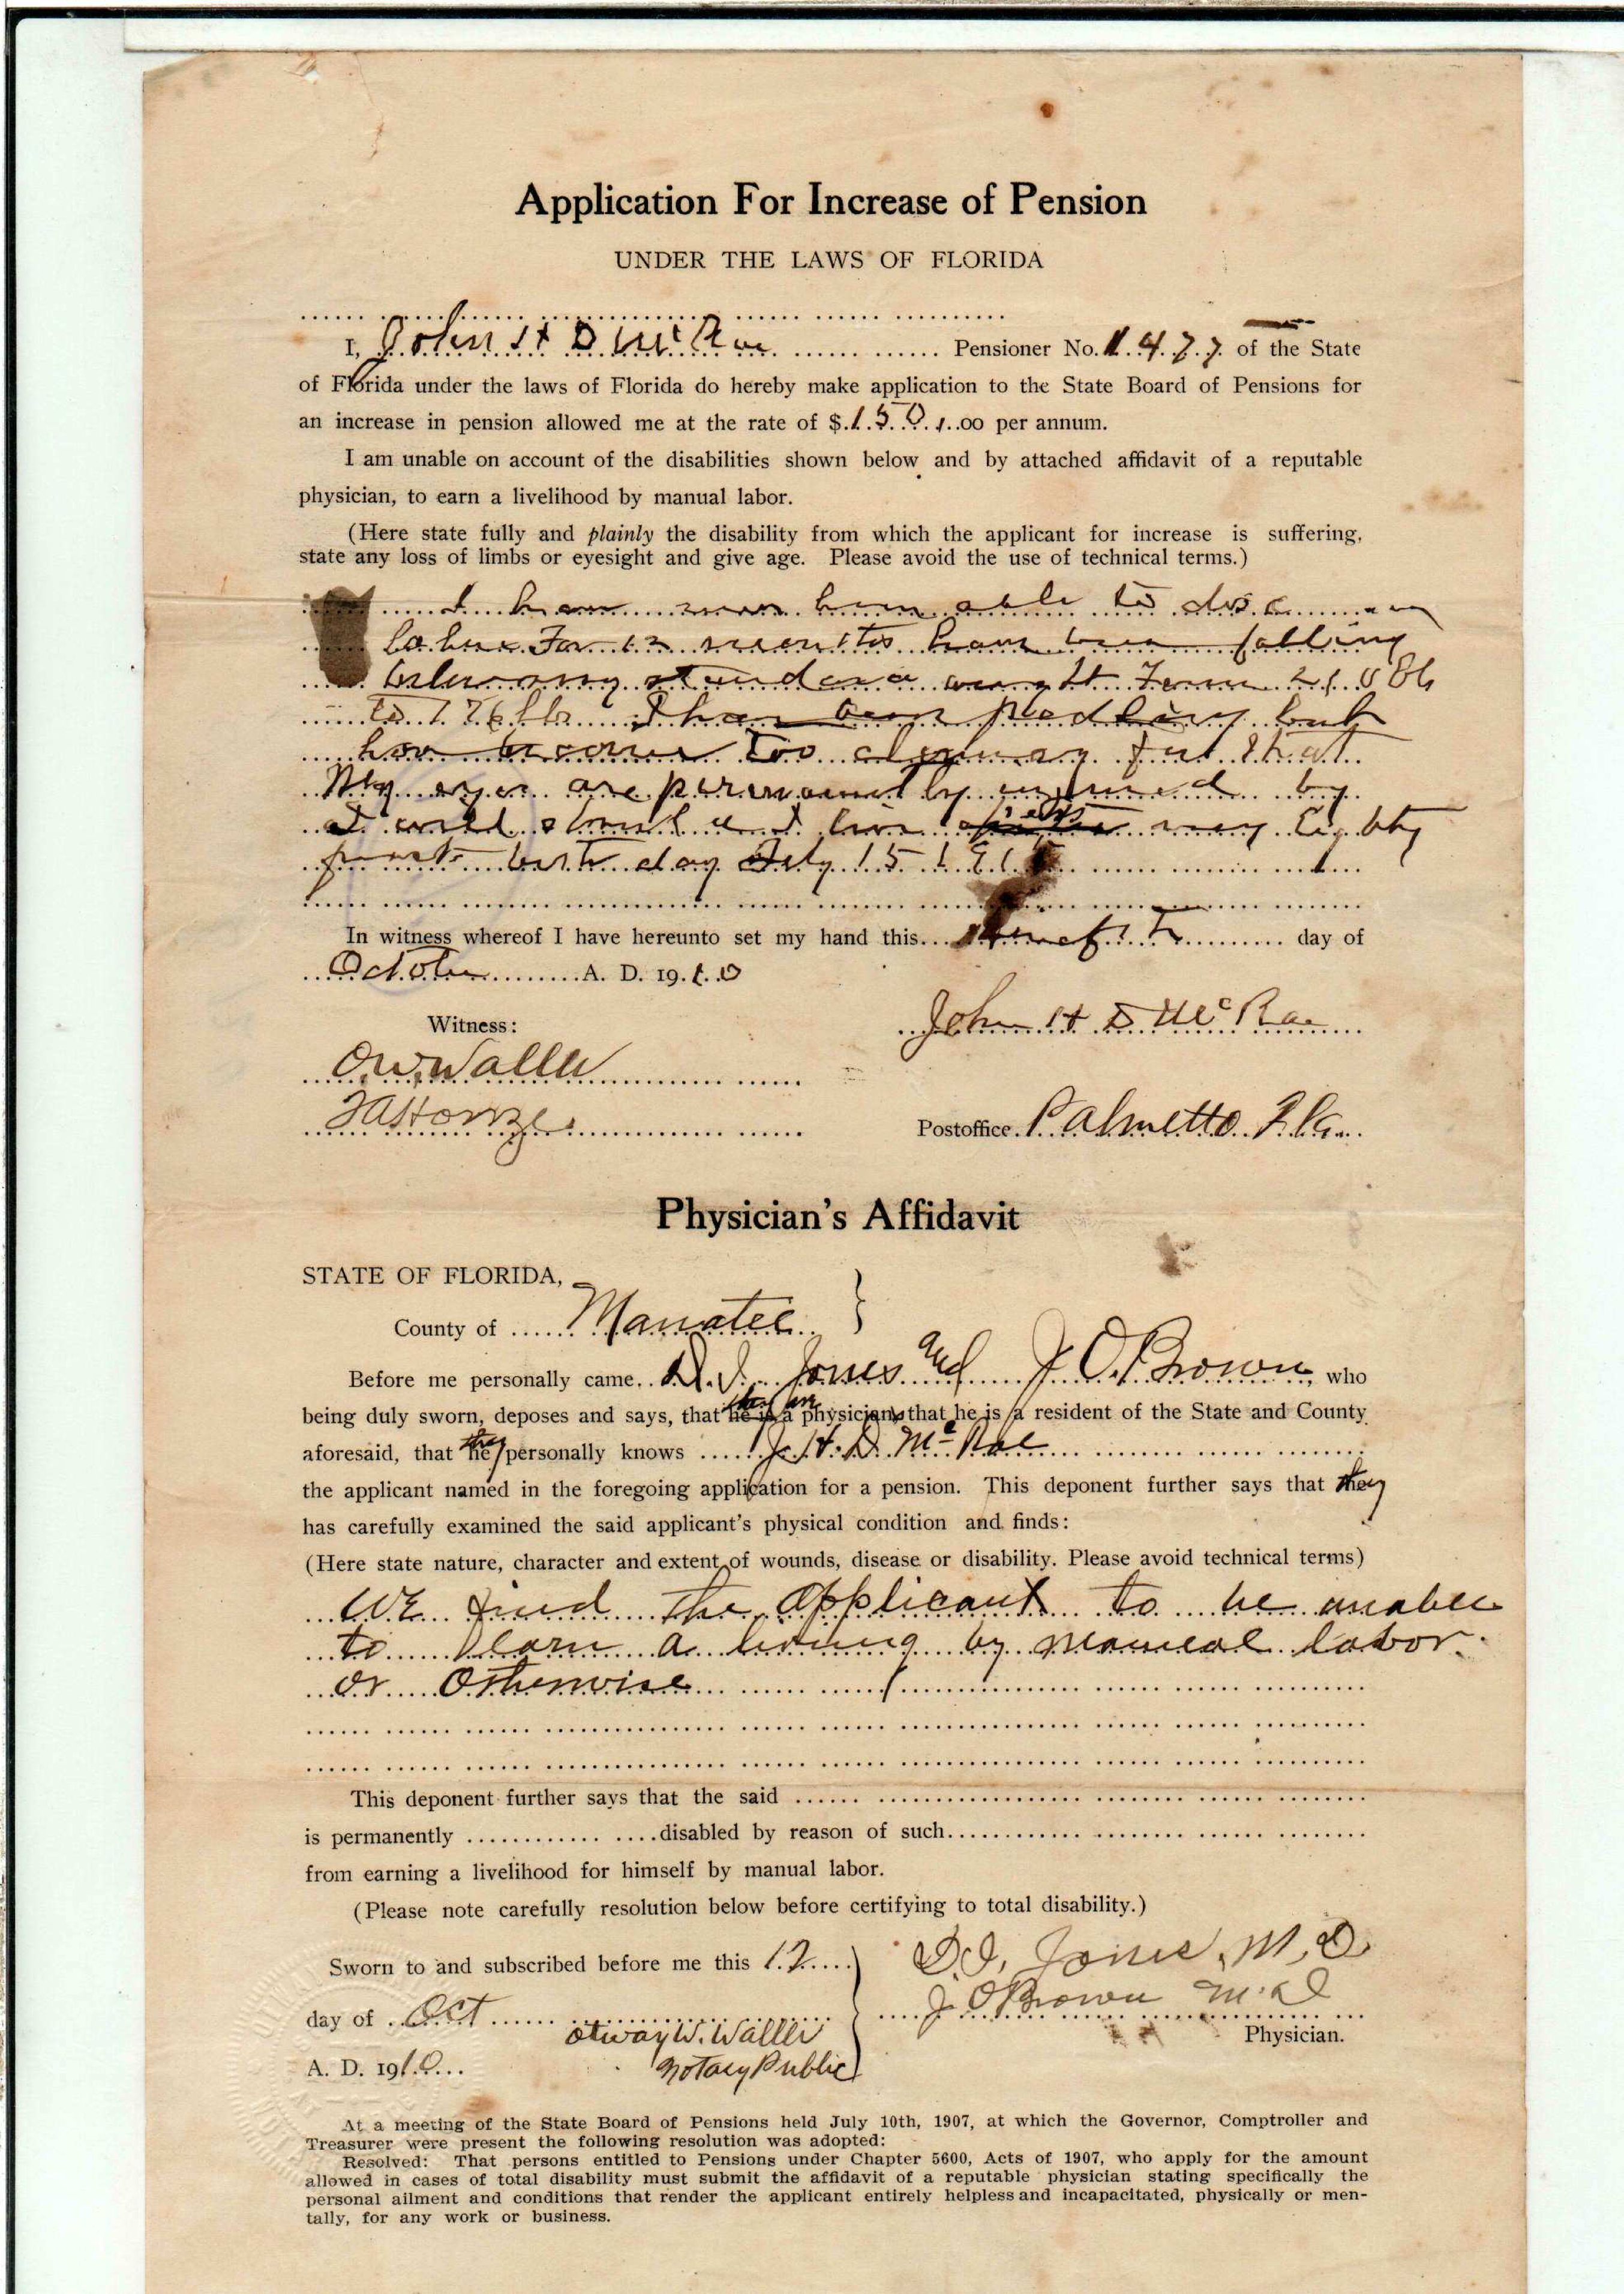 Application For Increase of Pension
UNDER THE LAWS OF FLORIDA
I, John H D McRae Pensioner No. 1477 of the State
of Florida under the laws of Florida do hereby make application to the State Board of Pensions for
an increase in pension allowed me at the rate of $150.00 per annum.
I am unable on account of the disabilities shown below and by attached affidavit of a reputable
physician, to earn a livelihood by manual labor.
(Here state fully and plainly the disability from which the applicant for increase is suffering,
state any loss of limbs or eyesight and give age. Please avoid the use of technical terms.)
I have been able to do
For 12 months have been falling
below my weight From 210 lb
to 176 lb I have been but
have become too
My eyes are permanently injured by
I live my Eighty
birth day July 15 191
In witness whereof I have hereunto set my hand this day of
October A. D. 1910
John H D McRae
Witness:
O W Waller
Postoffice Palmetto Fla
Physician's Affidavit
STATE OF FLORIDA,
County of Manatee }
Before me personally came D. I. Jones and J. O. Brown, who
being duly sworn, deposes and says, that he is a they are physicians that he is a resident of the State and County
aforesaid, that they personally knows J. H. D. McRae
the applicant named in the foregoing application for a pension. This deponent further says that they
has carefully examined the said applicant's physical condition and finds:
(Here state nature, character and extent of wounds, disease or disability. Please avoid technical terms)
We find the applicant to be unable
to earn a living by manual labor
or Otherwise
This deponent further says that the said
is permanently disabled by reason of such
from earning a livelihood for himself by manual labor.
(Please note carefully resolution below before certifying to total disability.)
Sworn to and subscribed before me this 12
D. I. Jones, M.D.
J. O Brown M.D
day of Oct
Otway W. Waller
Physician.
A. D. 1910
Notary Public
At a meeting of the State Board of Pensions held July 10th, 1907, at which the Governor, Comptroller and
Treasurer were present the following resolution was adopted:
Resolved: That persons entitled to Pensions under Chapter 5600, Acts of 1907, who apply for the amount
allowed in cases of total disability must submit the affidavit of a reputable physician stating specifically the
personal ailment and conditions that render the applicant entirely helpless and incapacitated, physically or men-
tally, for any work or business.